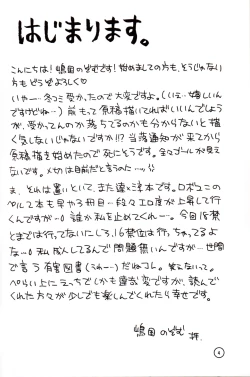 はじまります。
こんにちは！嶋田のぞむです！始めましての方も、そうじゃない
方もどうぞよろしく♡
いやー…冬コミ受かったので大変ですよ。(いえ…嬉しいん
ですけどね…)前もって原稿描いてればいいんでしょう
が、受かってんのか落ちてるのかも分からないと描
く気しないじゃないですか!!?当落通知が来てから
原稿描き始めたので死にそうです。全々ゴールが見え
ないです。〆切は目前だと言うのた…
ま、それは置いといて、また違〻本です。ロボュニの
ペル本も早や3冊目…段々エロ度が上昇して行
くんですが…誰か私を止めてくれー。今回18禁
とまでは行ってないにしろ、16禁位は行っちゃってるよ
な…私、成人してるんで問題無いんですが…世間
で言う有害図書(うわー…)だねコレ。笑えないって。
ぺらい上にえっちでしかも違〻変ですが、読んで
くれた方々が少しでも楽しんでくれたら幸せです。
嶋田のぞむ 拝.
4